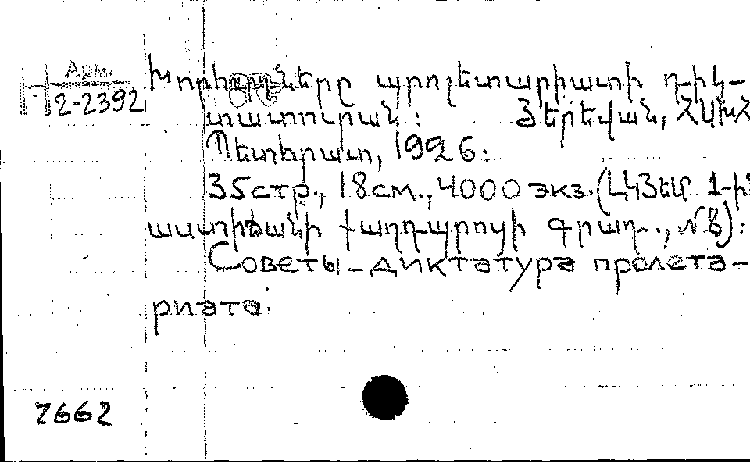 Арм.
2-2392
Խորհուրդները պրոլետարիատի դիկ-
տատուրան: Յերեվան, ՀՍԽՀ
Պետհրատ, 1926:
35стр., 18см., 4000 экз. (ԼԿՅԵՄ 1-ին
աստիճանի քաղդպրոցի գրադ., №8):
Советы - диктатура пролета-
риата.
2662